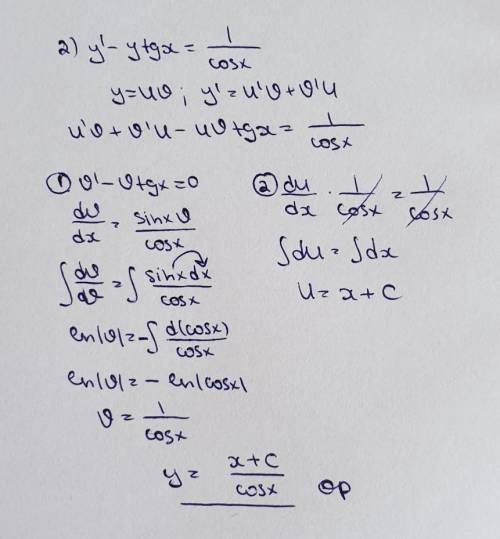 2) y' - y tgx = 1/cosx
y = uϑ; y' = u'ϑ + ϑ'u
u'ϑ + ϑ'u - uϑ tgx = 1/cosx
① ϑ' - ϑ tgx = 0
dϑ/dx = sinx ϑ/cosx
∫ dϑ/ϑ = ∫ sinx dx/cosx
ln|ϑ| = -∫ d(cosx)/cosx
ln|ϑ| = - ln|cosx|
ϑ = 1/cosx
② du/dx · 1/cosx = 1/cosx
∫du = ∫dx
u = x + C
y = x+C/cosx ор